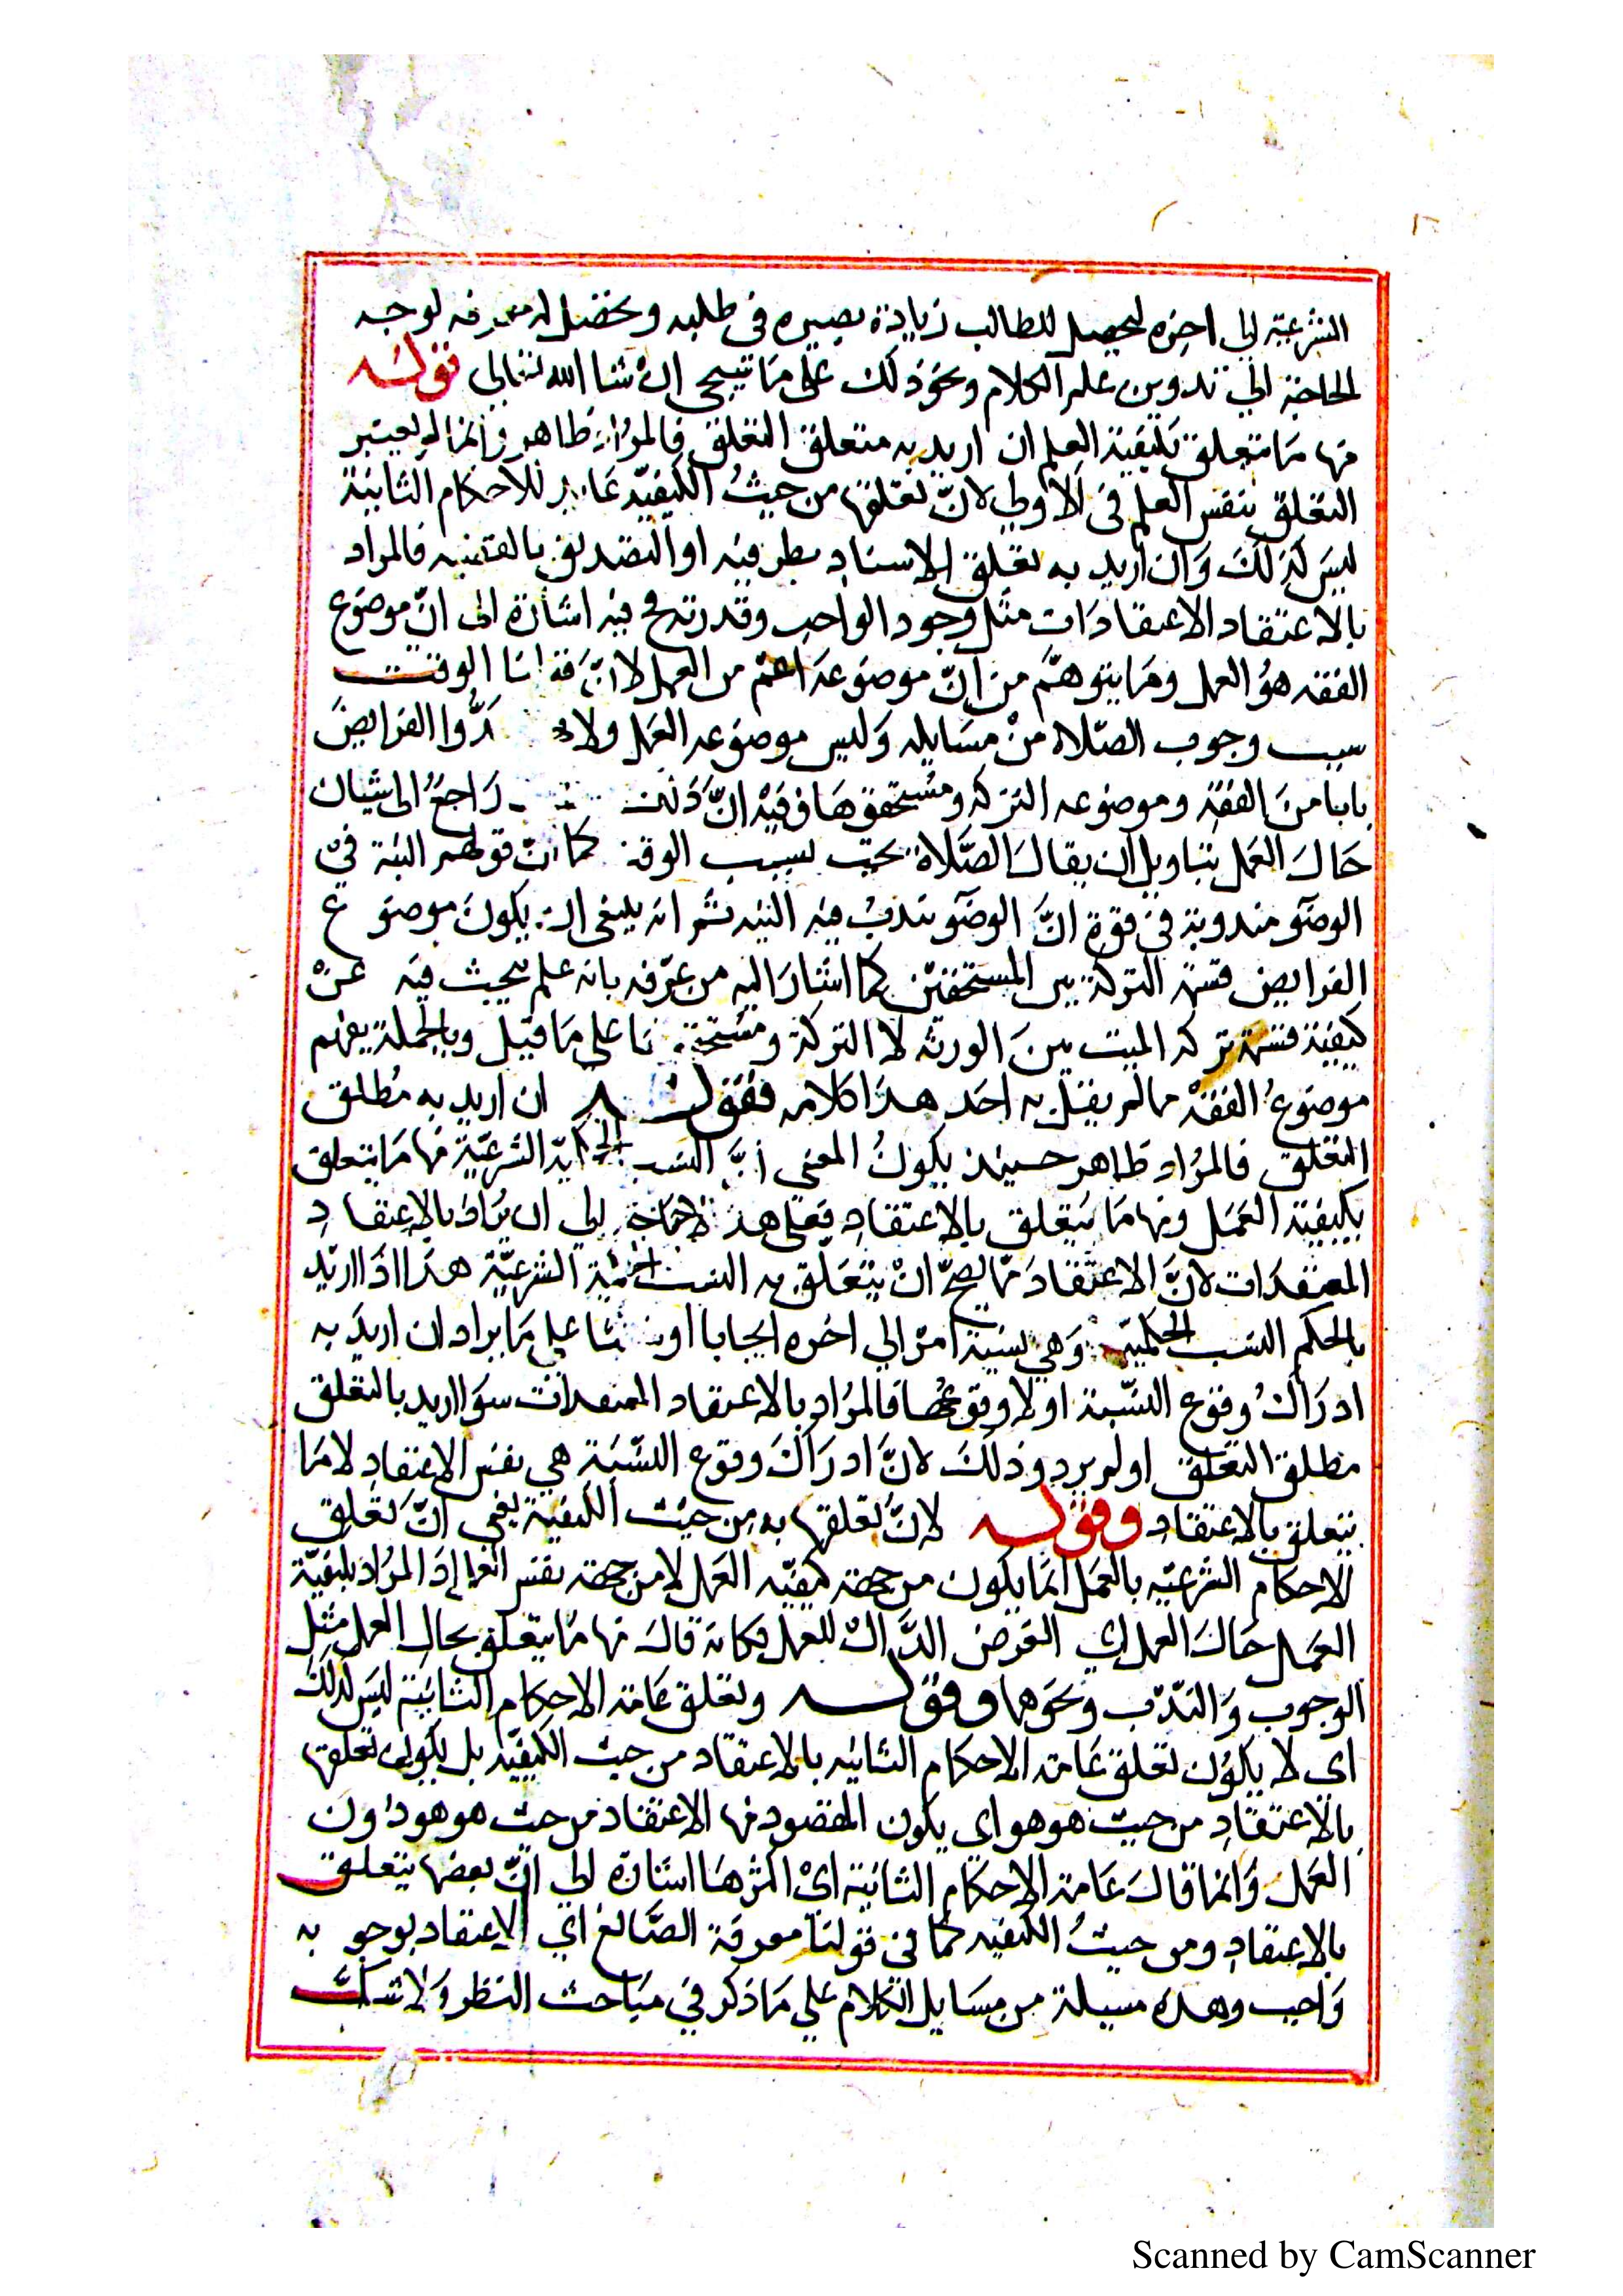 الشرعية الى اخره ليحصل للطالب زيادة بصيره فى طلبه ويحصل له معرفه لوجه
الحاجة الي تدوين علم الكلام ونحو ذلك على ما سيجى ان شا الله تعالى قوله
منها ما يتعلق بكيفية العمل ان اريد به متعلق التعلق فالمراد ظاهر وانما لم يعتبر
التعلق بنفس العمل فى الاولي لانّ تعلقها من حيثُ الكيفيّه للاحكام الثانية
ليسَ كذلكَ وَان اريد به تعلق الاسناد بطرفيه او التصديق بالقضيه فالمراد
بالاعتقاد الاعتقادَات مثل وجود الواجب وقدرته فيه اشارة الى انّ موضوع
الفقه هوُ العمل ومَا يتوهّم من انّ موضوعَه اعم من العمل لانّ قولنا الوقت
سبب وجوب الصّلاة منْ مسَايله وَليس موضوعه العمَل ولا عدُّوا الفرايضَ
بابا منَ الفقه وموضوعه التركه ومُستحقوهَا ففيْه انّ ذلك رَاجعُ الى بيان
حَال العمَل بتاويل ان يقالَ الصَّلاة تجب بسبب الوقت كما انّ قولهم النية فىْ
الوضو مندوبة فى قوة انَّ الوضو تندبُ فيه النيه ثم انه ينبغى ان يكونَ موضوع
الفرايض قسمة التركة بين المستحقين كما اشارَ اليه من عرّفه بانه علم يبحث فيه عنْ
كيفيّة قسمة تركه الميت بينَ الورثه لا التركة ومستحقوها على مَا قيل وبالجملة تعميم
موضوعُ الفقه مما لم يقل به احَد هذا كلامه فقوله ان اريد به مُطلق
التعلق فالمرُاد ظاهر حينيذ يكونُ المعنى انَّ النسب الشرعيّة منها مَا يتعلق
بكيفيّة العمَل ومنها مَا يتعلق بالاعتقادِ فعلى هذا لا حاجة الي ان يُرَاد بالاعتقادِ
المعتقدَات لانَّ الاعتقادَ ممّا يصحّ انْ يتعَلّق به النسب الشرعيّة هذا اذا اريد
بالحكم النسب الحكميّة وَهى نسبة امرٍ الي اخره ايجابا او على مَا يراد ان اريدَ به
ادرَاكُ وقوع النسّبة او لا وقوعهُا فالمرُاد بالاعتقاد المعتقدات سوَا اريد بالتعلق
مطلق التعلق او لم يرد وذلكَ لانَّ ادرَاكَ وقوع النسّبَة هي نفسُ الاعتقادِ لا مَا
يتعلق بالاعتقاد وقوله لانّ تعلقها به من حيْث الكيفيّة يعنى انّ تعَلق
الاحكام الشرعيّه بالعمَل انما يكون من جهة كيفيّه العمَل لا من جهة نفس العمل إذ المرُاد بكيفيّة
العمَل حَالَ العمل اي العَرض الذَّاتى للعمل فكانه قالَ منها مَا يتعلق بحال العمل مثل
الوجوب وَالندّب ونحَوهَا وقوله وتعلق عَامة الاحكام الثانيَة ليسَ كذلكَ
اى لا يكوُن تعلق عَامة الاحكام الثانيه بالاعتقاد من حيث الكيفيّه بل يكون تعلقها
بالاعتقادِ من حيث هو هو اى يكون المقصود منها الاعتقاد من حيث هو هو دُون
العمَل وَانما قالَ عَامة الاحكام الثانيَة ايْ اكثرهَا اشارة الي انّ بعضها يتعلق
بالاعتقادِ ومن حيثُ الكيفيه كما فى قولنا معرفة الصَّانع اي الاعتقاد بوجوبه
وَاجب وهذه مسيلة من مسَايل الكلام علي مَا ذكر في مبَاحث النظر وَلا شكَّ
Scanned by CamScanner